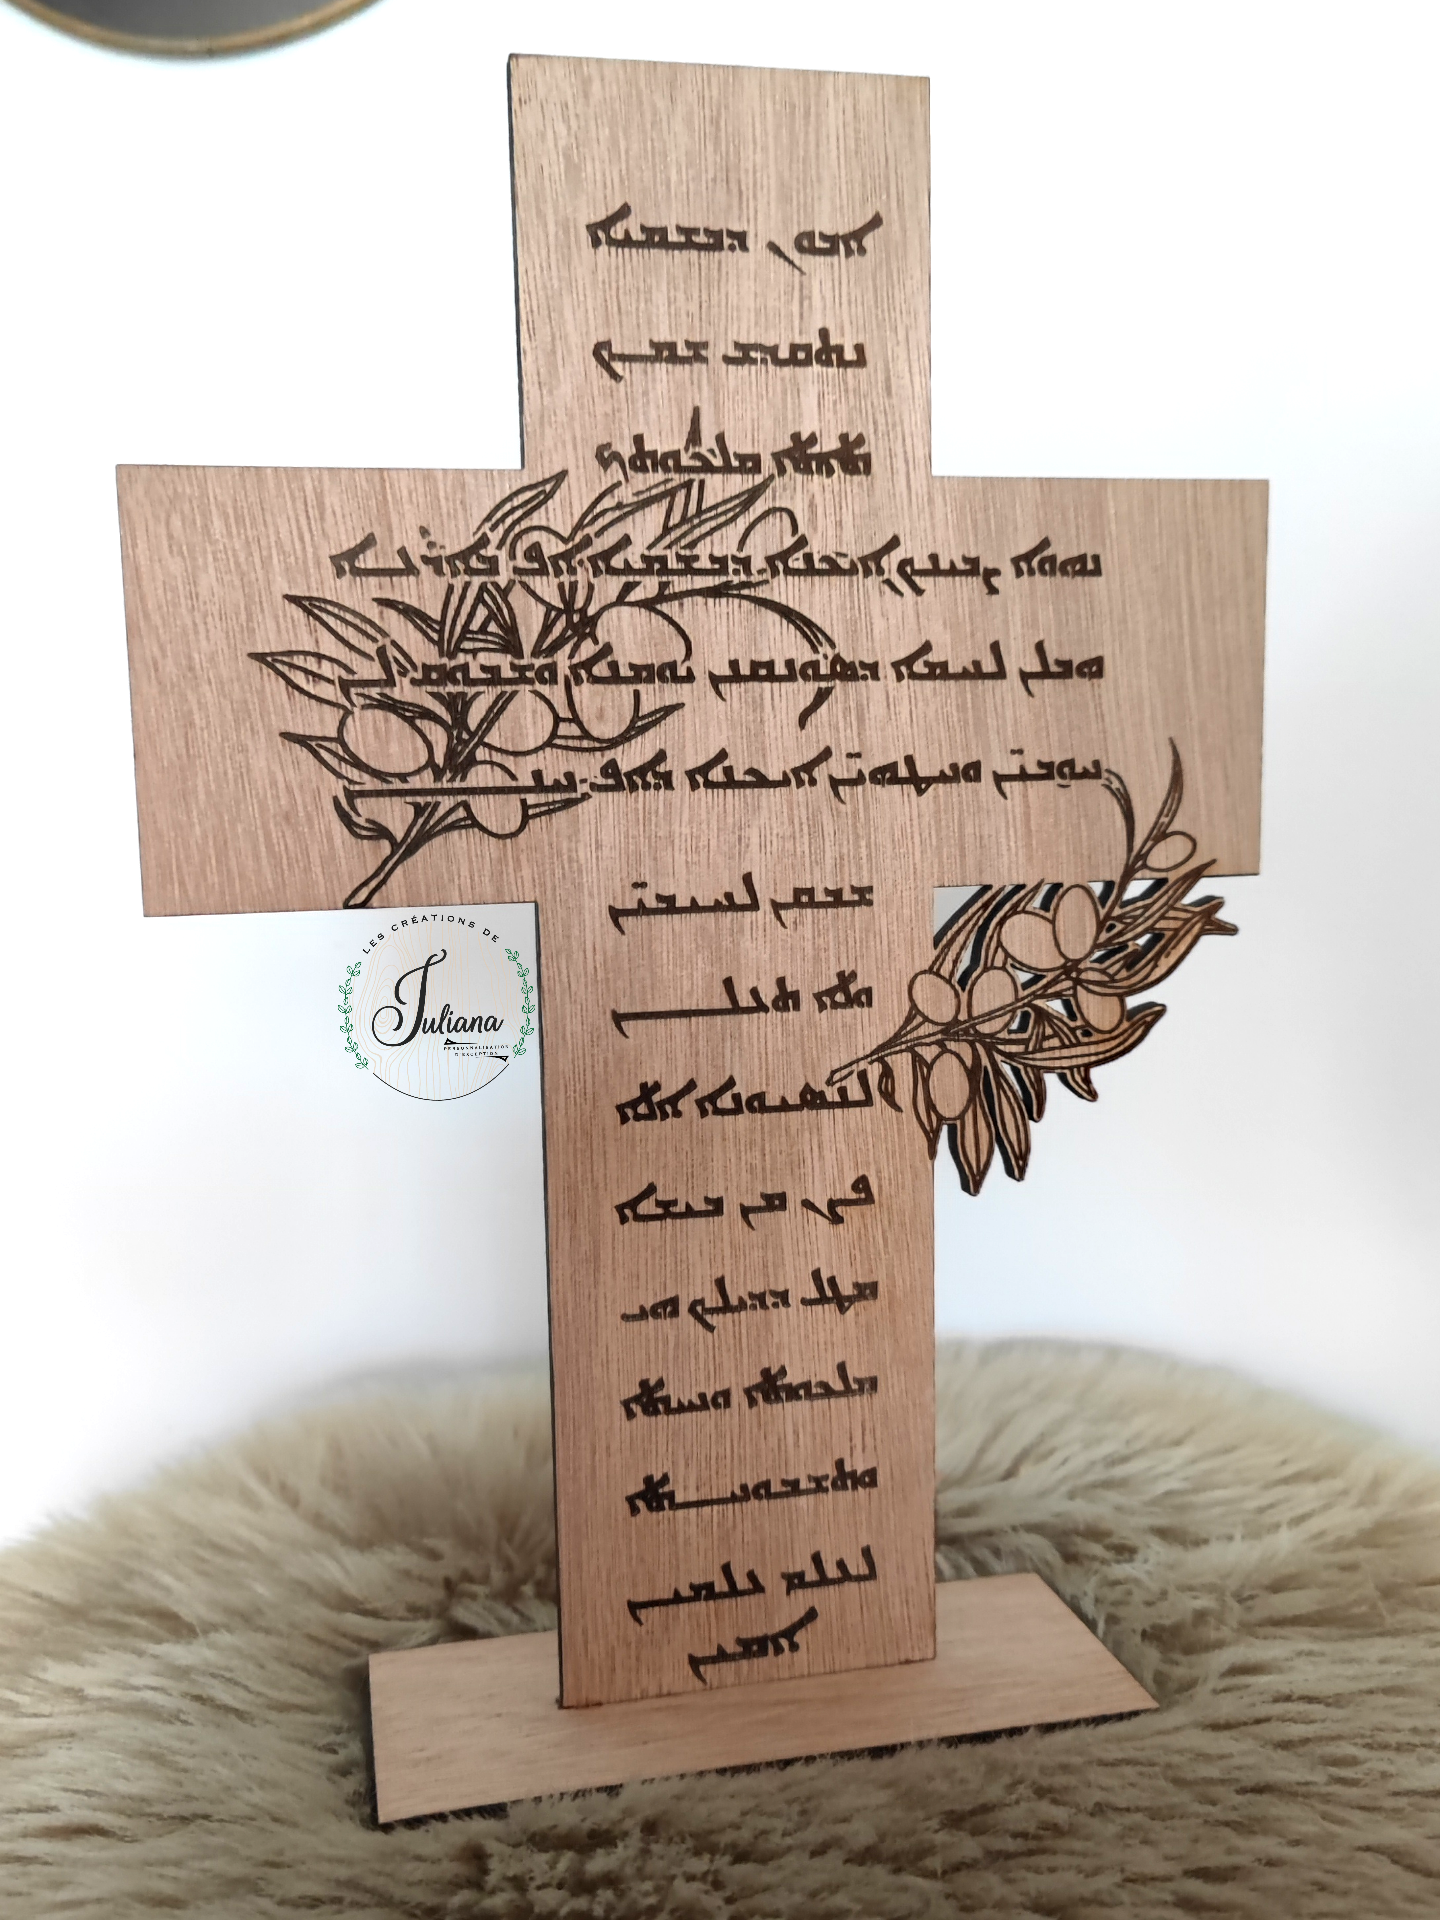 ܐܒܘܢ ܕܒܫܡܝܐ
ܢܬܩܕܫ ܫܡܟ
ܬܐܬܐ ܡܠܟܘܬܟ
ܢܗܘܐ ܨܒܝܢܟ ܐܝܟܢܐ ܕܒܫܡܝܐ ܐܦ ܒܐܪܥܐ
ܗܒܠܢ ܠܚܡܐ ܕܣܘܢܩܢܢ ܝܘܡܢܐ ܘܫܒܘܩ ܠܢ
ܚܘܒܝ̈ܢ ܘܚܛܗܝ̈ܢ ܐܝܟܢܐ ܕܐܦ ܚܢܢ
ܫܒܩܢ ܠܚܝܒܝ̈ܢ
ܘܠܐ ܬܥܠܢ
ܠܢܣܝܘܢܐ ܐܠܐ
ܦܨܢ ܡܢ ܒܝܫܐ
ܡܛܠ ܕܕܝܠܟ ܗܝ
ܡܠܟܘܬܐ ܘܚܝܠܐ
ܘܬܫܒܘܚܬܐ
ܠܥܠܡ ܥܠܡܝܢ
ܐܡܝܢ
LES CRÉATIONS DE
Juliana
PERSONNALISATION
D'EXCEPTION